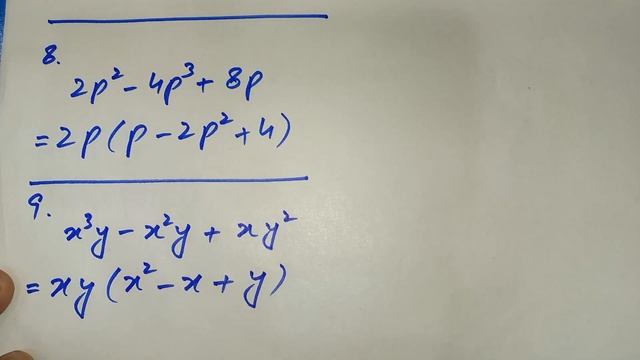 8.
2p² - 4p³ + 8p
= 2p(p - 2p² + 4)
9.
x³y - x²y + xy²
= xy(x² - x + y)